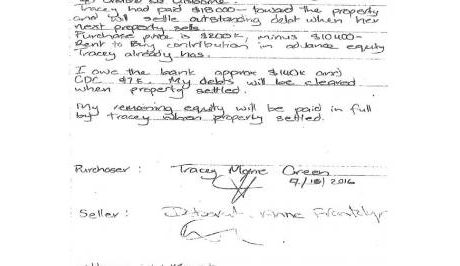 Tracey had paid $18000- toward the property
and will settle outstanding debt when her
next property sells.
Purchase price is $200K, minus $10400-
Rent to Buy contribution in advance equity
Tracey already has.
I owe the bank approx $140K and
CDC $7K. My debts will be cleared
when property settled.
My remaining equity will be paid in full
by Tracey when property settled.
Purchaser : Tracey
2016
Seller :